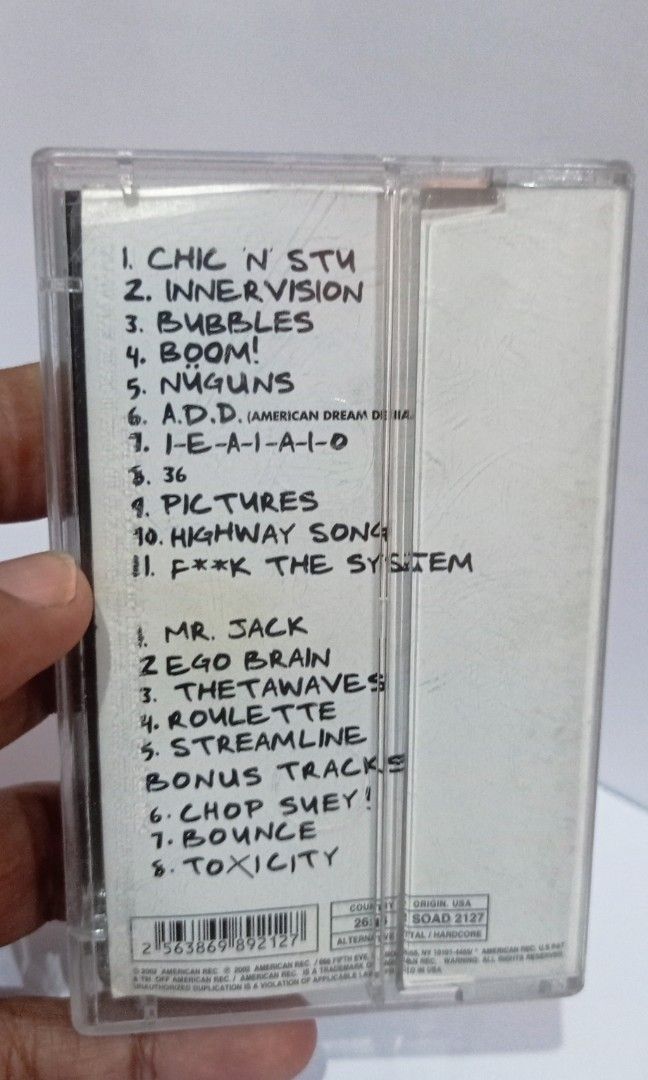 1. CHIC 'N' STU
2. INNERVISION
3. BUBBLES
4. BOOM!
5. NÜGUNS
6. A.D.D. (AMERICAN DREAM DENIAL
7. I-E-A-I-A-I-O
8. 36
9. PICTURES
10. HIGHWAY SONG
11. F**K THE SYSTEM
1. MR. JACK
2 EGO BRAIN
3. THETAWAVES
4. ROULETTE
5. STREAMLINE
BONUS TRACKS
6. CHOP SUEY!
7. BOUNCE
8. TOXICITY
COUNTRY ORIGIN. USA
SOAD 2127
ALTERNATIVE METAL / HARDCORE
2 563869 892127
© 2002 AMERICAN REC. ℗ 2002 AMERICAN REC. / 666 FIFTH EVE. NY 10101-4455/ " AMERICAN REC. U.S PAT
& TM. OFF AMERICAN REC. / AMERICAN REC. IS A TRADEMARK OF AMERICAN REC. WARNING: ALL RIGHTS RESERVED.
UNAUTHORIZED DUPLICATION IS A VIOLATION OF APPLICABLE LAWS PRINTED IN USA